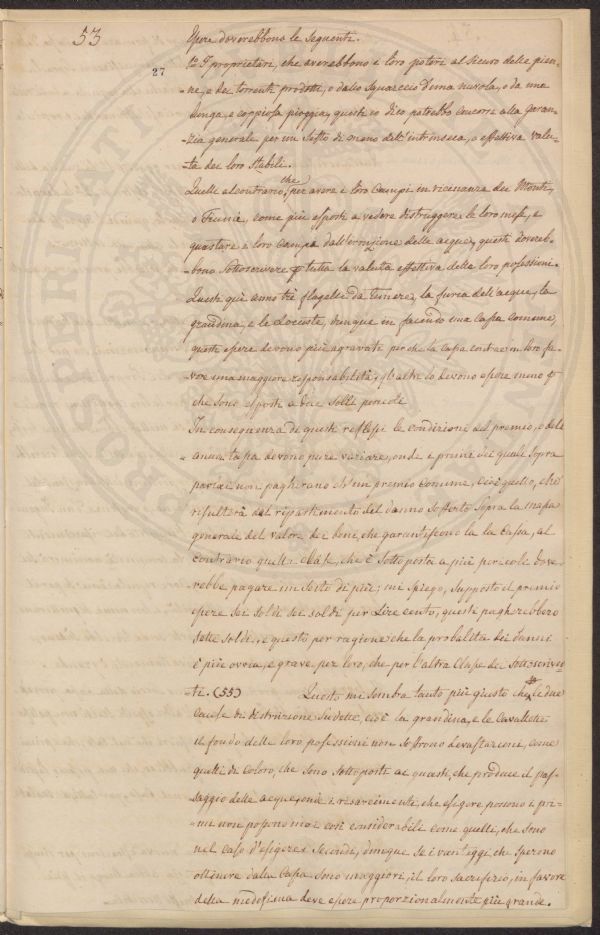 53
27
Essere doverebbono le seguenti.
Pº I proprietari, che averebbono i loro poteri al sicuro delle pien-
ne, e dei torrenti prodotti, o dallo squarccio d'una nuvola, o da una
lunga, e coppiosa pioggia, questi io dico potrebbo concorrer alla garan-
zia generale per un setto di meno dell'intrinseca, o effettiva valu-
ta dei loro stabili.
Quelli al contrario, che per avere i loro Campi in vicinanza dei Monti,
o Fiumi, come più esposti a vedere distruggere le loro messi, e
guastare i loro Campi dall'
delle acque, questi doverob-
bono sottoscrivere p tutta la valuta effettiva delle loro possessioni.
Questi quì anno trè flagelli da temere, la furia dell'acque, la
grandina, e le Locuste, dunque in facendo una Cassa Comune,
questi essere devono più agravati perche la Cassa contrae in loro fa-
vore una maggiore responsabilità, gl'altri lo devono essere meno p
che sono esposti a due solli pericoli
In conseguenza di questi reflessi le condizioni del premio, o della
annua tassa devono pure variare, onde i primi dei quali sopra
parlai non pagherano ch'un premio comune, cioè quello, che
risulterà dal ripartimento del danno sofferto sopra la massa
generale del valore dei beni, che garantiscono la la Cassa, al
contrario quella classe, che è sottoposta a più pericoli dove-
rebbe pagare un sesto di più; mi spiego, supposto il premio
essere sei soldi sei soldi per Lire cento, questi pagherebbero
sette soldi, e questo per ragione che la probalita dei danni
è più ovvia, e grave per loro, che per l'altra Classe dei sottoscriven-
ti. (55) Questo mi sembra tanto più giusto che le due
Cause di distruzione sudette, cioè la grandina, e le Cavallette
il fondo delle loro possessioni non soffrono devastazioni, come
quelli di coloro, che sono sottoposti ai guasti, che produce il pas-
saggio delle acque, onde i risarcimenti, che esigere possono i pri-
mi non possono mai così considerabili come quelli, che sono
nel caso d'esigere i secondi, dunque se i vantaggi che sperono
ottenere dalla Cassa sono maggiori, il loro sacrifizio, in favore
della medesima deve essere proporzionalmente più grande.
PROSPERITATI